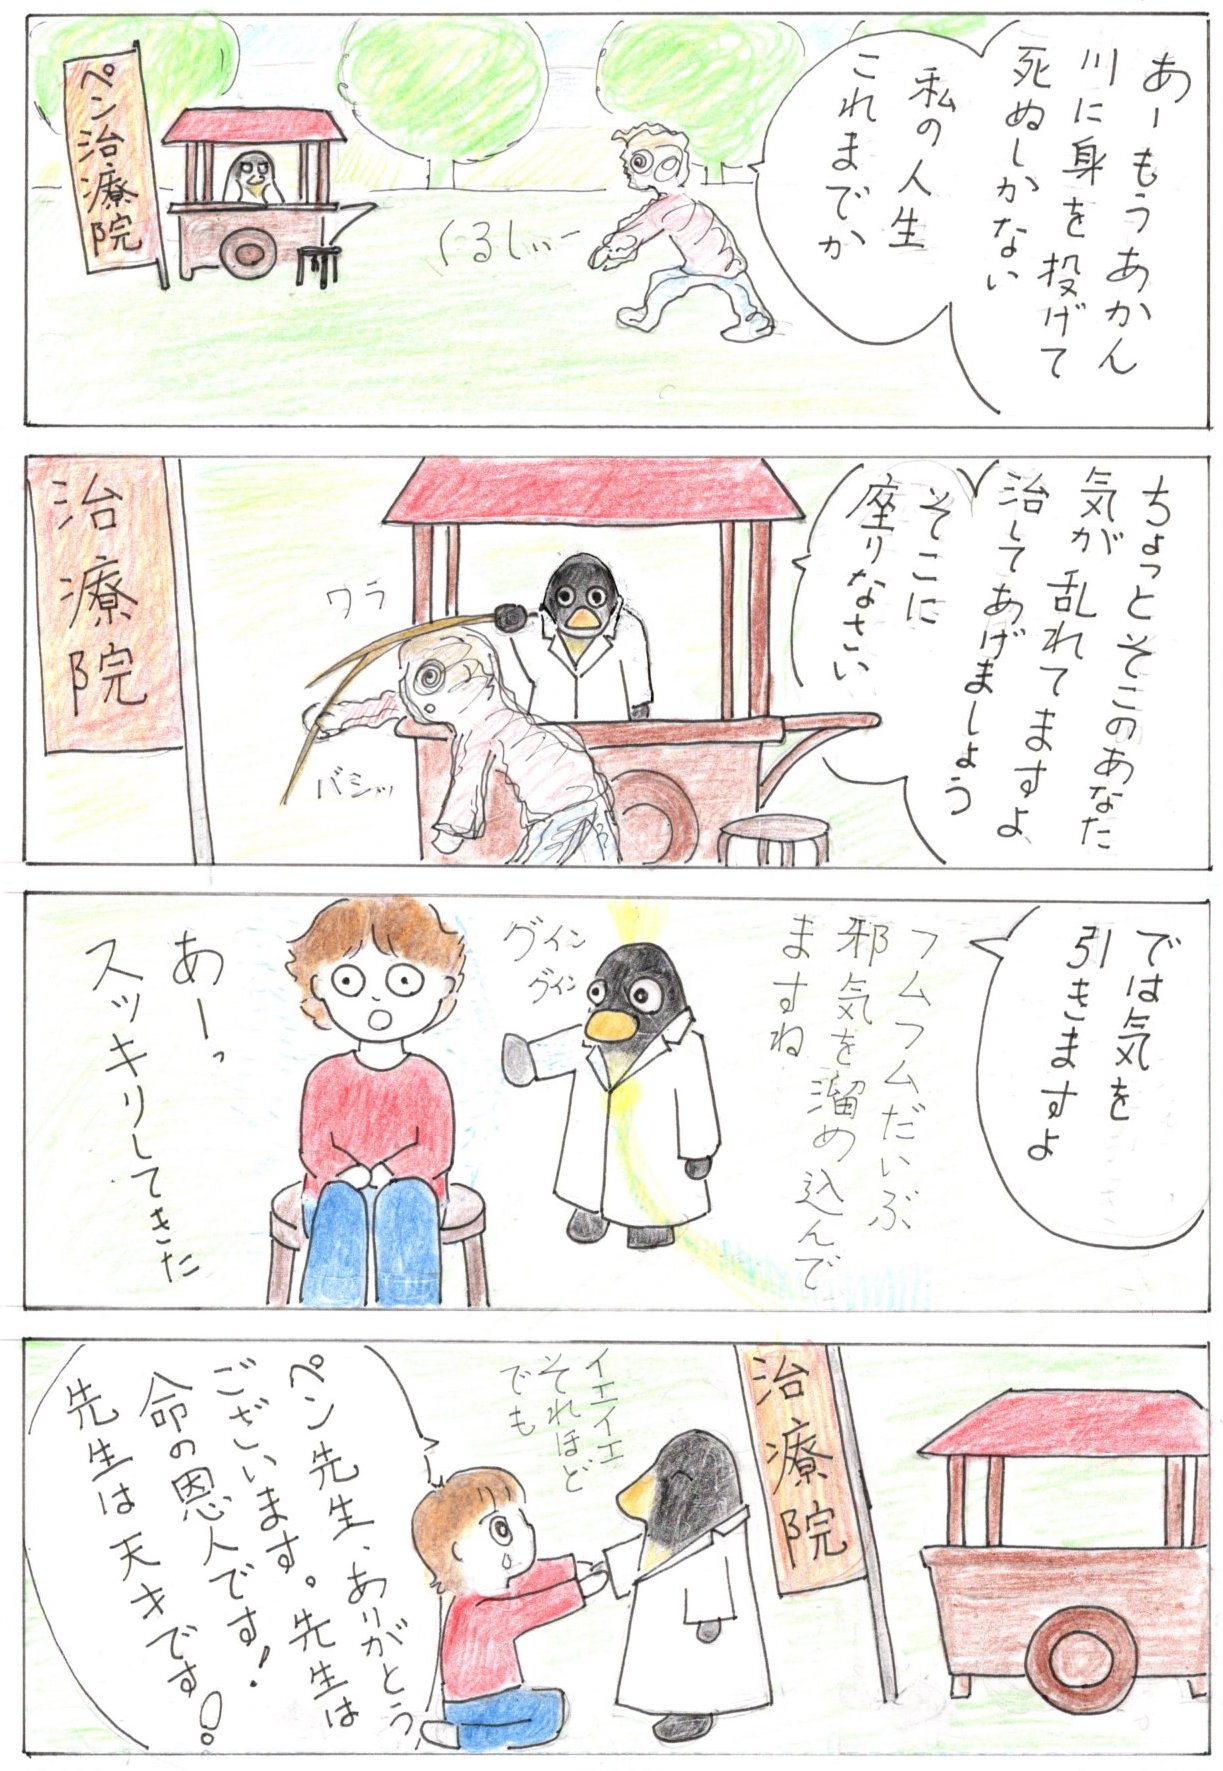 あーもうあかん
川に身を投げて
死ぬしかない
私の人生
これまでか
くるしぃー
ペン治療院
ちょっとそこのあなた
気が乱れてますよ
治してあげましょう
そこに
座りなさい
ワラ
バシッ
治療院
では気を
引きますよ
フムフムだいぶ
邪気を溜め込んで
ますね
グイン
グイン
あーっ
スッキリしてきた
治療院
イエイエ
それほど
でも
ペン先生、ありがとう
ございます。先生は
命の恩人です!
先生は天才です!!